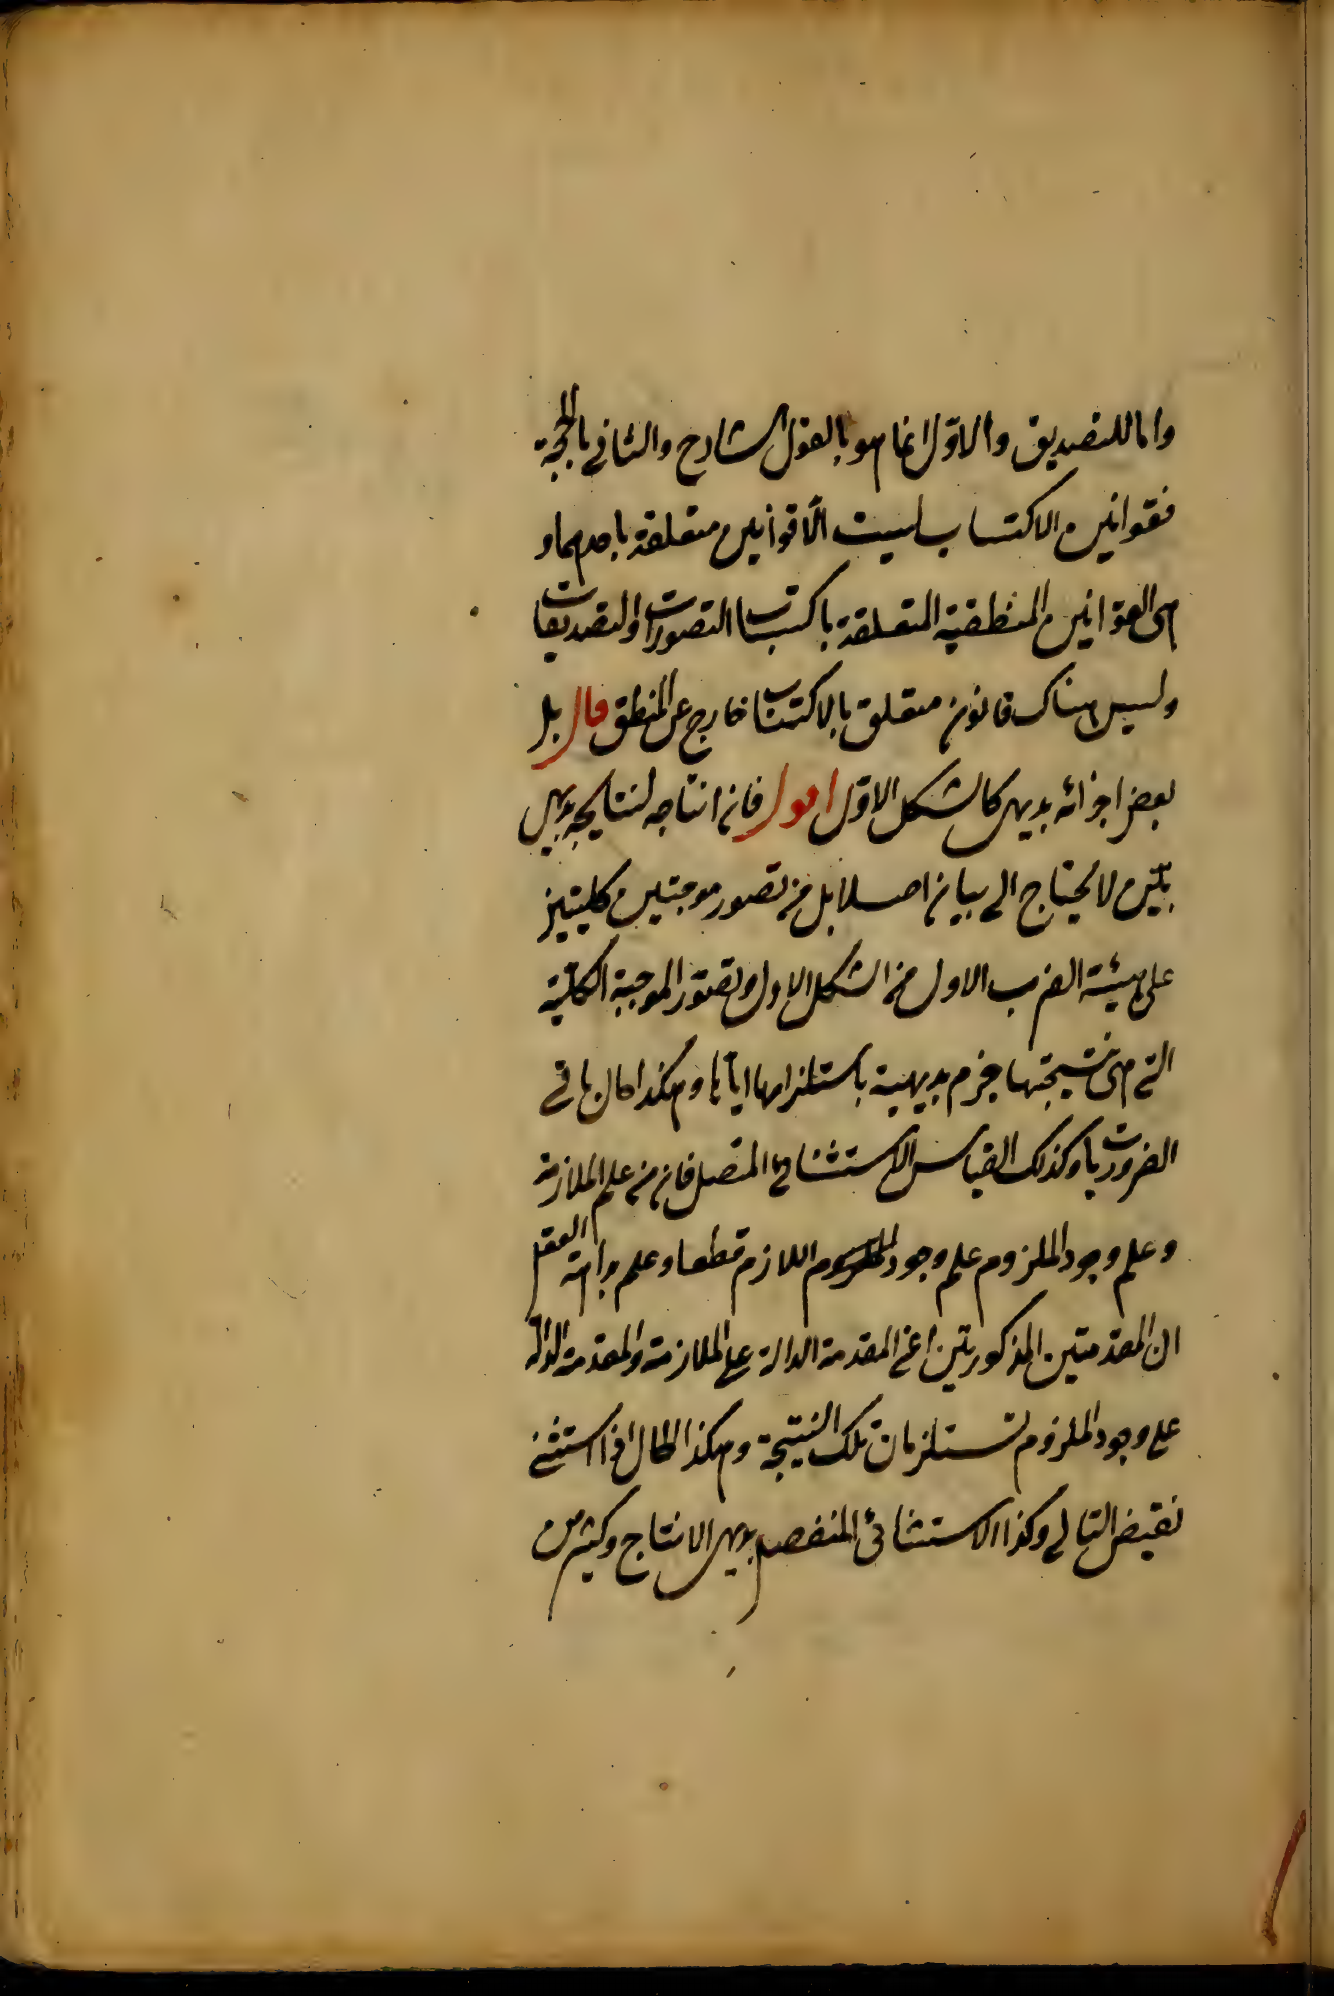 واما للتصديق والاوّل انما هو بالقول الشارح والثانى بالحجة
فقوانين الاكتساب ليست الّا قوانين متعلقة باحدهما و
هى القوانين المنطقية المتعلقة باكتساب التصورات والتصديقات
وليس هناك قانون متعلق بالاكتساب خارج عن المنطق قال بل
بعض اجزائه بديهى كالشكل الاوّل اقول فان انتاجه لنتايجه بديهى
بيّن لا يحتاج الى بيان اصلا بل من تصور موجبتين كليتين
على هيئة الضرب الاول من الشكل الاول وتصوّر الموجبة الكلّية
التى هى نتيجتها جزم بديهية باستلزامها اياها وهكذا حال باقى
الضروريات وكذلك القياس الاستثنائى المتصل فان من علم الملازمة
وعلم وجود الملزوم علم وجود اللازم قطعا وعلم بداهة العقل
ان المقدمتين المذكورتين اعنى المقدمة الدالة على الملازمة والمقدمة الدالة
على وجود الملزوم تستلزمان تلك النتيجة وهكذا الحال اذا استثنى
نقيض التالى وكذا الاستثنائى المنفصل بديهى الانتاج وكثير من